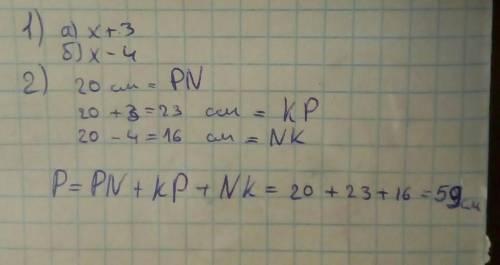 1) а) x + 3
б) x - 4
2) 20 см = PN
20 + 3 = 23 см = KP
20 - 4 = 16 см = NK
P = PN + KP + NK = 20 + 23 + 16 = 59 см